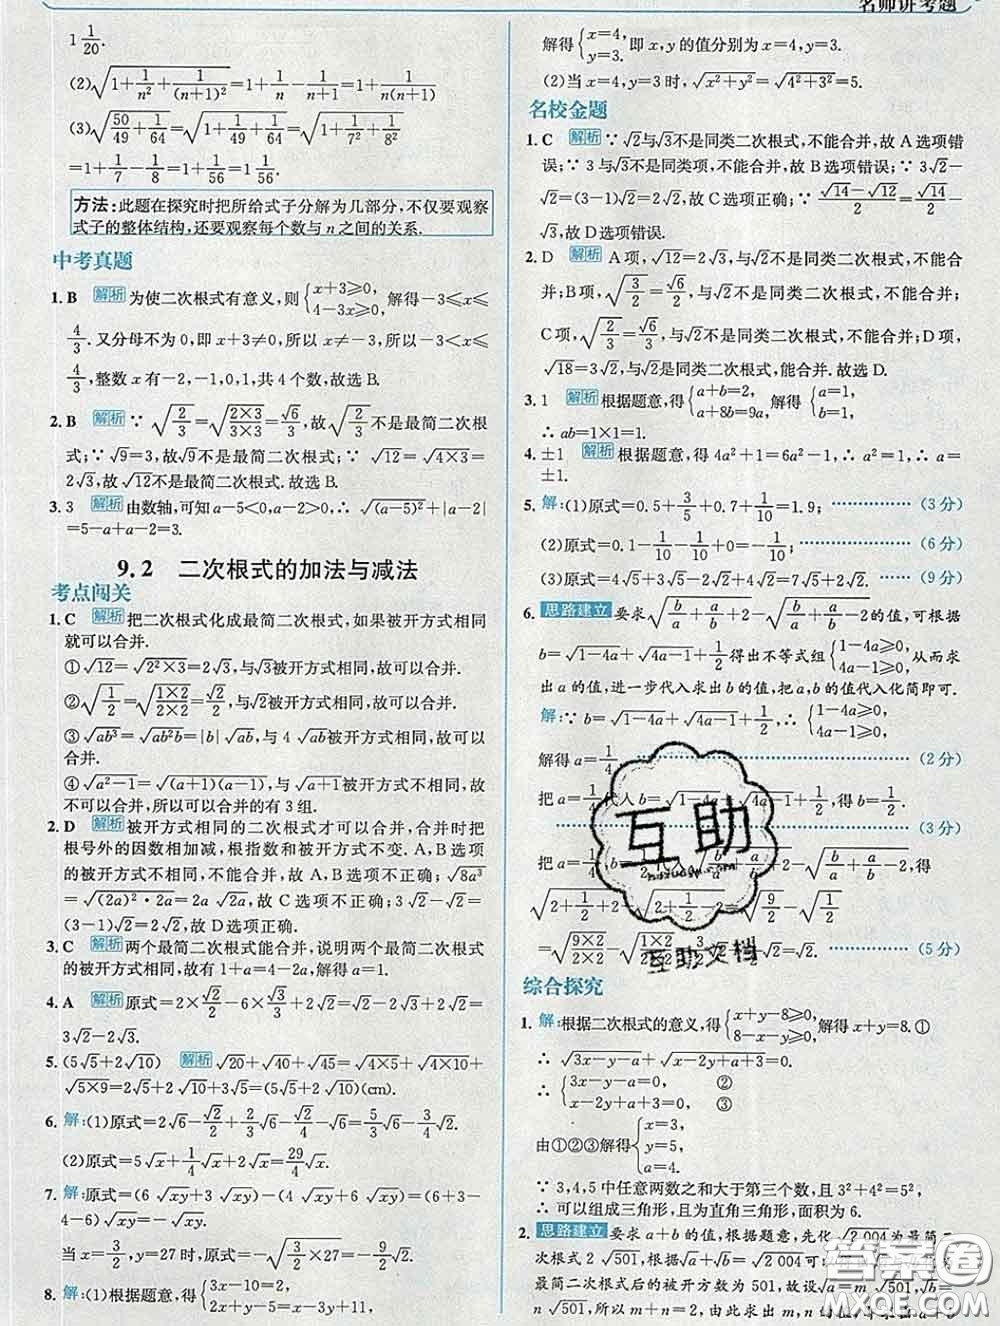 名师讲考题
1 1/20.
(2)√(1+1/n²+1/(n+1)²)=1+1/n-1/(n+1)=1+1/(n(n+1))
(3)√(50/49+1/64)=√(1+1/49+1/64)=√(1+1/7²+1/8²)
=1+1/7-1/8=1+1/56=1 1/56.
方法:此题在探究时把所给式子分解为几部分,不仅要观察
式子的整体结构,还要观察每个数与n之间的关系.
中考真题
1. B 解析 为使二次根式有意义,则{x+3≥0, 4-3x≥0, 解得-3≤x≤
4/3.又分母不为0,即x+3≠0,所以x≠-3,所以-3<x≤
4/3,整数x有-2,-1,0,1,共4个数,故选B.
2. B 解析 ∵ √(2/3)=√((2×3)/(3×3))=√6/3,故√(2/3)不是最简二次根
式;∵√9=3,故√9不是最简二次根式;∵√12=√(4×3)=
2√3,故√12不是最简二次根式.故选B.
3. 3 解析 由数轴,可知a-5<0,a-2>0,∴ √(a-5)²+|a-2|
=5-a+a-2=3.
9.2 二次根式的加法与减法
考点闯关
1. C 解析 把二次根式化成最简二次根式,如果被开方式相同
就可以合并.
①√12=√(2²×3)=2√3,与√3被开方式相同,故可以合并.
②√(1/2)=√((1×2)/(2×2))=√2/2,与√2被开方式相同,故可以合并.
③√(ab³)=√(ab²b)=|b|√ab,与4√ab被开方式相同,故可以
合并.
④√(a²-1)=√((a+1)(a-1)),与√(a+1)被开方式不相同,故
不可以合并,所以可以合并的有3组.
2. D 解析 被开方式相同的二次根式才可以合并,合并时把
根号外的因数相加减,根指数和被开方式不变.A,B选项
的被开方式不相同,不能合并,故A,B选项不正确;√(8a³)
=√((2a)²·2a)=2a√2a,故C选项不正确;3√2-√2=
(3-1)√2=2√2,故D选项正确.
3. C 解析 两个最简二次根式能合并,说明两个最简二次根式
的被开方式相同,故有1+a=4-2a,解得a=1.
4. A 解析 原式=2×√2/2-6×√3/3+2√2=√2-2√3+2√2=
3√2-2√3.
5. (5√5+2√10) 解析 √20+√40+√45=√(4×5)+√(4×10)+
√(5×9)=2√5+2√10+3√5=(5√5+2√10)(cm).
6. 解:(1)原式=2√6-√2/2+√2/3-√6/3=5/3√6-√2/6.
(2)原式=5√x+1/4√x+2√x=29/4√x.
7. 解:原式=(6√xy+3√xy)-(4√xy+6√xy)=(6+3-
4-6)√xy=-√xy.
当x=3/2,y=27时,原式=-√(3/2×27)=-9/2√2.
8. 解:(1)根据题意,得{3x-10=2, 2x+y-5=x-3y+11,
解得{x=4, y=3. 即x,y的值分别为x=4,y=3.
(2)当x=4,y=3时,√(x²+y²)=√(4²+3²)=5.
名校金题
1. C 解析 ∵√2与√3不是同类二次根式,不能合并,故A选项错
误;∵3与√3不是同类项,不能合并,故B选项错误;∵3√2-
√2=(3-1)√2=2√2,故C选项正确;∵(√14-√12)/√2=√14/2-
√3,故D选项错误.
2. D 解析 A项,√12=2√3,与√2不是同类二次根式,不能合
并;B项,√(3/2)=√6/2,与√2不是同类二次根式,不能合并;
C项,√(2/3)=√6/3,与√2不是同类二次根式,不能合并;D项,
√18=3√2,与√2是同类二次根式,可以合并.故选D.
3. 1 解析 根据题意,得{a+b=2, a+8b=9a, 解得{a=1, b=1.
∴ ab=1×1=1.
4. ±1 解析 根据题意,得4a²+1=6a²-1,∴a²=1,∴a=
±1.
5. 解:(1)原式=0.5+3/5+0.7+1/10=1.9; (3分)
(2)原式=0.1-1/10-1/10=-1/10; (6分)
(3)原式=4√3-2√5-2√3+4√5=2√3+2√5. (9分)
6. 思路建立 要求√(b/a+a/b+2)-√(b/a+a/b-2)的值,可根据
b=√(1-4a)+√(4a-1)+1/2得出不等式组{1-4a≥0, 4a-1≥0, 从而求
出a的值,进一步代入求出b的值,把a,b的值代入化简即可.
解:∵b=√(1-4a)+√(4a-1)+1/2,∴{1-4a≥0, 4a-1≥0,
解得a=1/4. (2分)
把a=1/4代入b=√(1-4a)+√(4a-1)+1/2,得b=1/2.
(3分)
把a=1/4,b=1/2代入√(b/a+a/b+2)-√(b/a+a/b-2),得
√(2+1/2+2)-√(2+1/2-2)=√(9/2)-√(1/2)
=√((9×2)/(2×2))-√((1×2)/(2×2))=3/2√2-1/2√2=√2. (5分)
综合探究
1. 解:根据二次根式的意义,得{x+y-8≥0, 8-x-y≥0, 解得x+y=8.①
∴ √(3x-y-a)+√(x-2y+a+3)=0.
∴ {3x-y-a=0, ② x-2y+a+3=0. ③
由①②③解得{x=3, y=5, a=4.
∵ 3,4,5中任意两数之和大于第三个数,且3²+4²=5²,
∴ 可以组成三角形,且为直角三角形,面积为6.
2. 思路建立 要求a+b的值,根据题意,先化√2 004为最简二
次根式2√501,根据√a+√b=√2 004,可知√a,√b化为
最简二次根式后的被开方数为501,故设√a=m√501,√b=
n√501,所以m+n=2,由此求出m,n的值,再求出a+b
互助
互助文档
答案圈
MXQE.COM